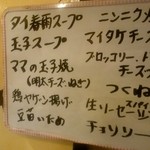 タイ春雨スープ
玉子スープ
ママの玉子焼
(明太チーズ・ねぎ)
鶏ヤゲン揚げ
豆苗いため
ニンニク
マイタケチーズ
ブロッコリー・ト
チーズ
つくね
生ソーセージ
スパイシー
チョリソー